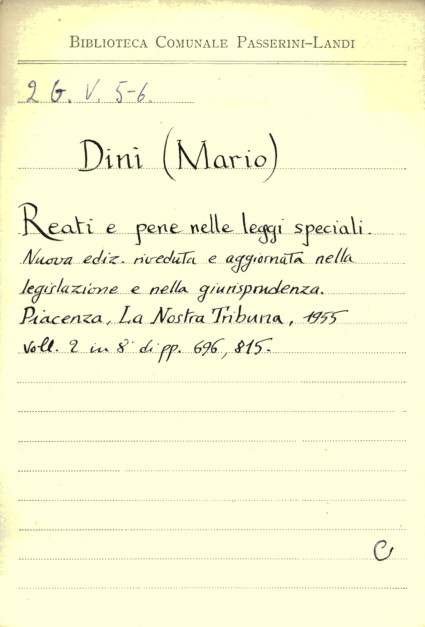 BIBLIOTECA COMUNALE PASSERINI-LANDI
2 G. V. 5-6.
Dini (Mario)
Reati e pene nelle leggi speciali.
Nuova ediz. riveduta e aggiornata nella
legislazione e nella giurisprudenza.
Piacenza, La Nostra Tribuna, 1955
voll. 2 in 8° di pp. 696, 815.
C